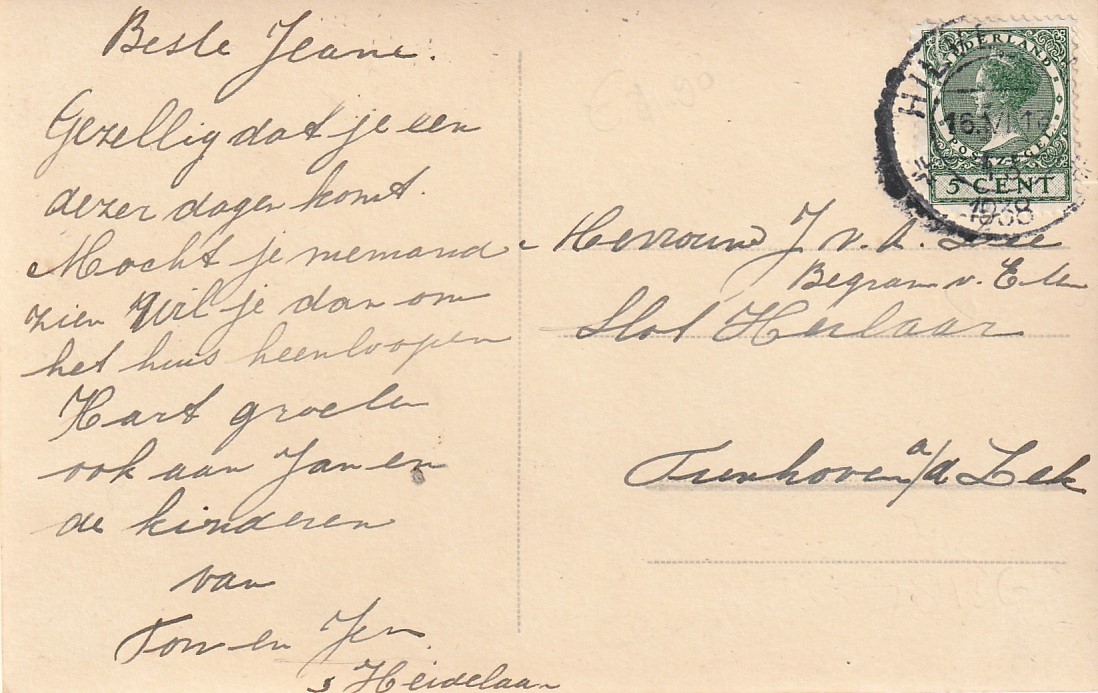 Beste Jeane.
Gezellig dat je een
dezer dagen komt.
Mocht je niemand
zien Wil je dan om
het huis heenloopen
Hart groeten
ook aan Jan en
de kinderen
van
Ton en Jen
Heidelaan
NEDERLAND
POSTZEGEL
5 CENT
16.VI
1938
Mevrouw J v.d.
v.
Slot Herlaar
Tienhoven a/d Lek